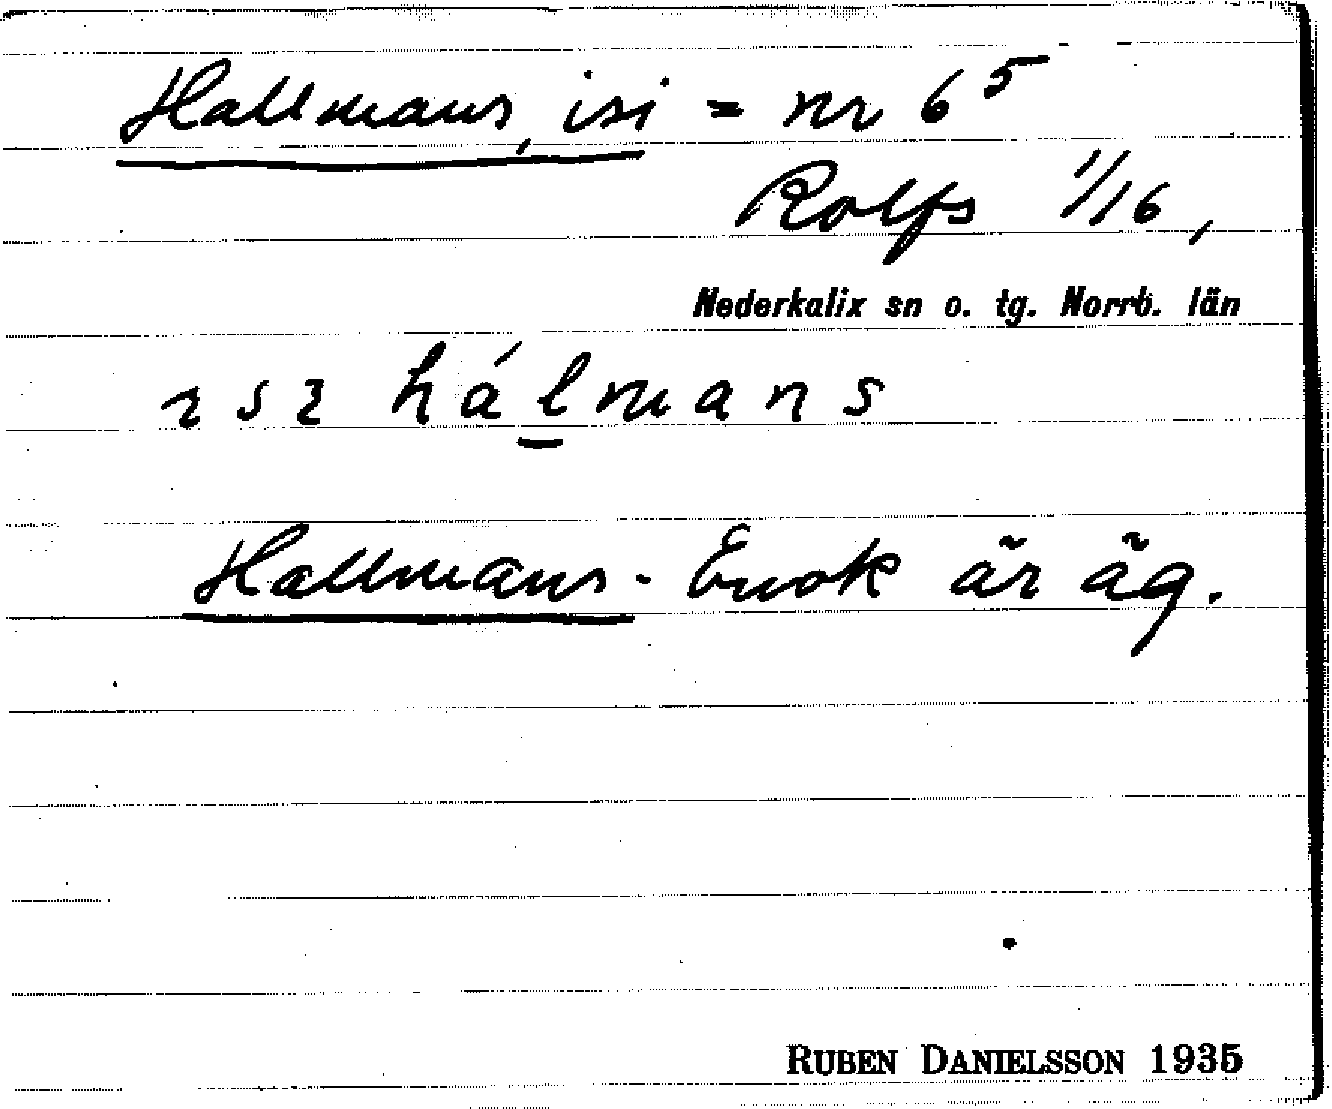 Hallmans, isi = nr 6⁵
Rolfs 1/16,
Nederkalix sn o. tg. Norrb. län
hálmans
Hallmans-Enok är äg.
RUBEN DANIELSSON 1935